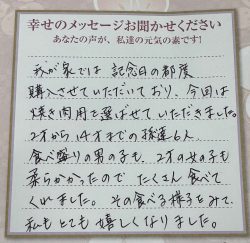 幸せのメッセージお聞かせください
あなたの声が、私達の元気の素です!
我が家では 記念日の都度
購入させていただいており、今回は
焼き肉用で選ばせていただきました。
2才から14才までの孫達6人
食べ盛りの男の子も、2才の女の子も
柔らかかったので たくさん食べて
くれました。その食べる様子をみて、
私もとても嬉しくなりました。